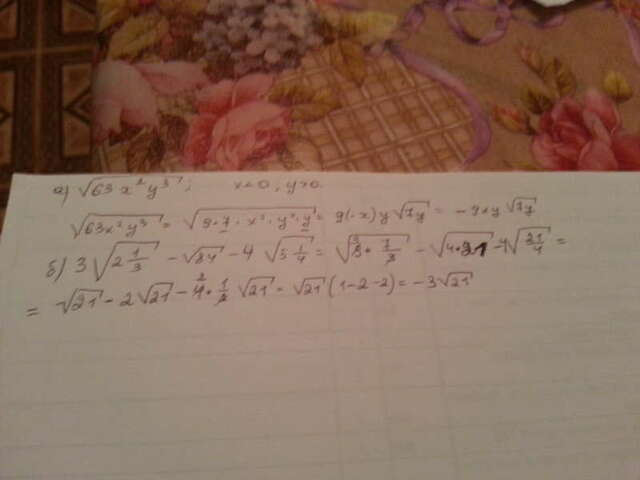 а) √63x²y³; x<0, y>0.
√63x²y³ = √9·7·x²·y²·y = 9(-x)y√7y = -9xy√7y
б) 3√2 1/3 - √84 - 4√5 1/4 = √9·7/3 - √4·21 - 4√21/4 =
= √21 - 2√21 - 4·1/2√21 = √21(1-2-2) = -3√21